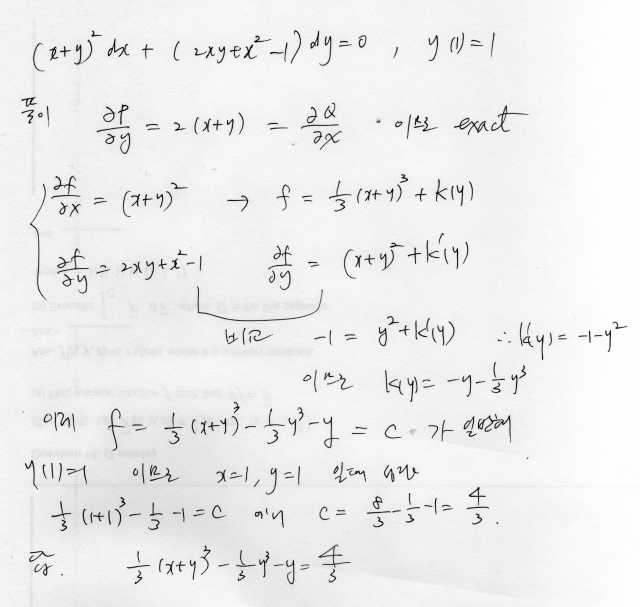 (x+y)² dx + (2xy+x²-1) dy = 0 , y(1) = 1
풀이 ∂P/∂y = 2(x+y) = ∂Q/∂x 이므로 exact
∂f/∂x = (x+y)² → f = 1/3 (x+y)³ + k(y)
∂f/∂y = 2xy+x²-1 ∂f/∂y = (x+y)² + k'(y)
비교 -1 = y²+k'(y) ∴ k'(y) = -1-y²
이므로 k(y) = -y-1/3 y³
이제 f = 1/3 (x+y)³ - 1/3 y³ - y = c 가 일반해
y(1)=1 이므로 x=1, y=1 일때
1/3 (1+1)³ - 1/3 - 1 = c 에서 c = 8/3 - 1/3 - 1 = 4/3.
답. 1/3 (x+y)³ - 1/3 y³ - y = 4/3